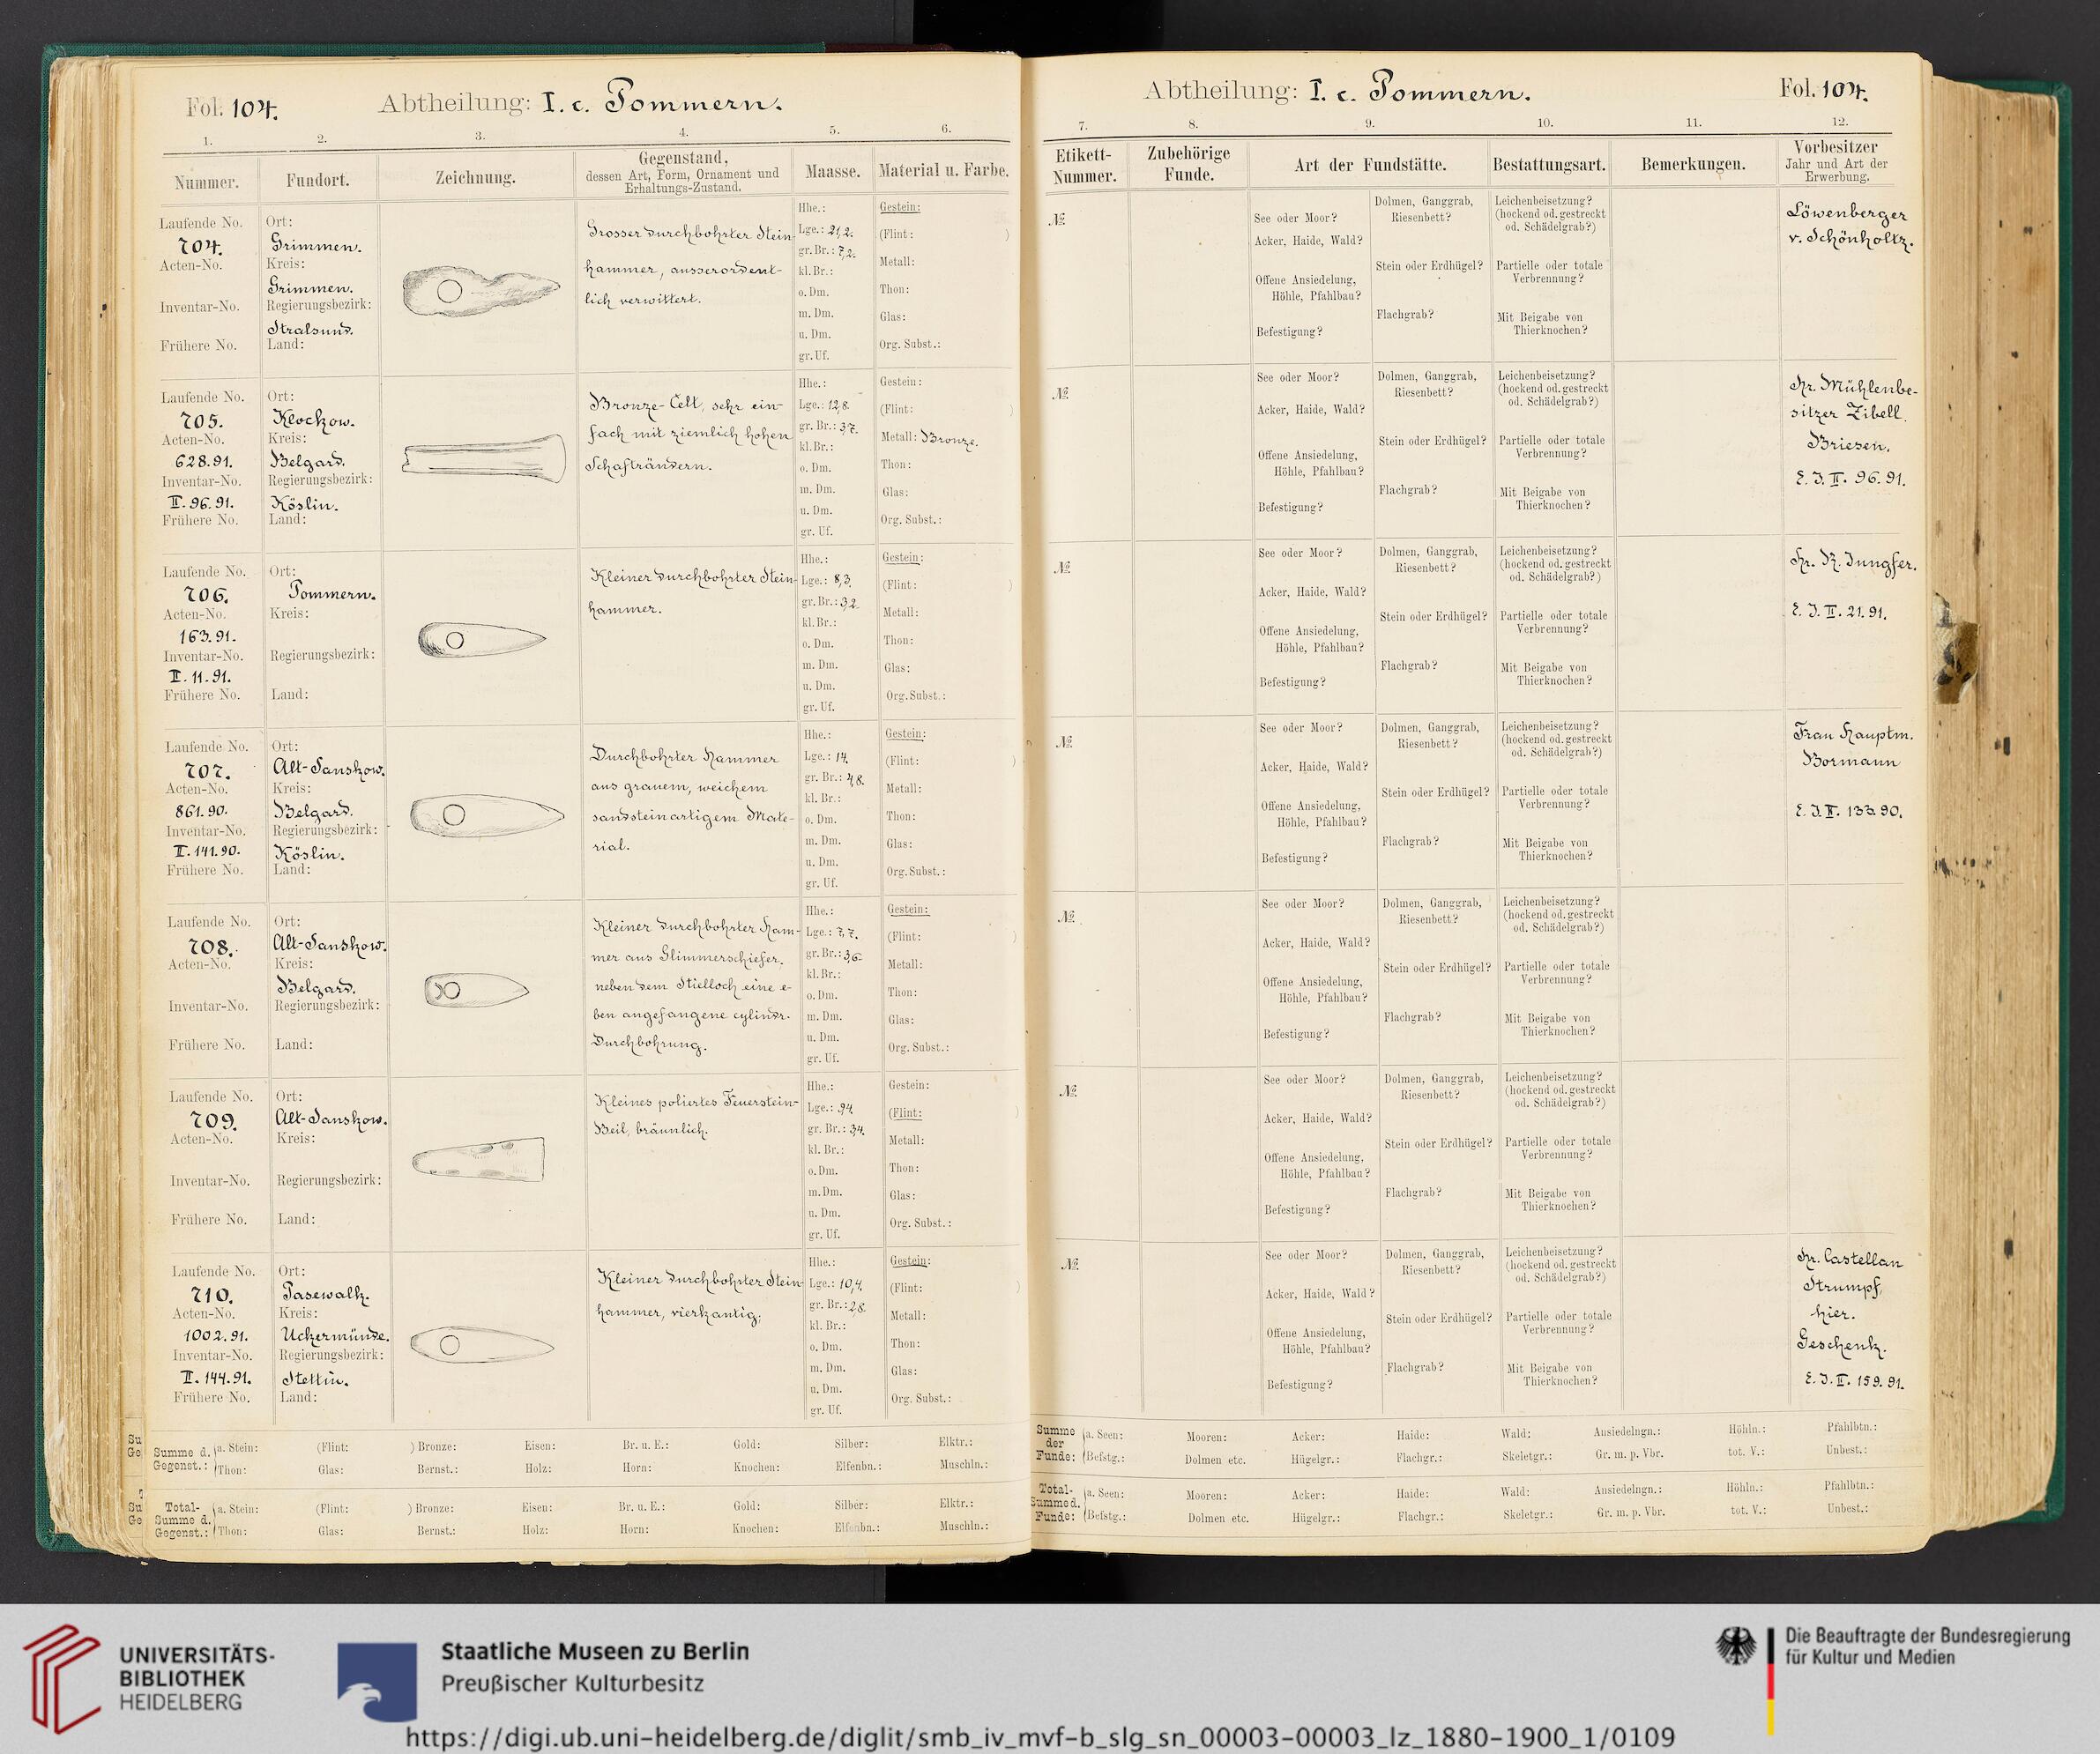 Fol. 104.
Abtheilung: I. c. Pommern.
1. 2. 3. 4. 5. 6.
Nummer.
Fundort.
Zeichnung.
Gegenstand,
dessen Art, Form, Ornament und
Erhaltungs-Zustand.
Maasse.
Material u. Farbe.
Laufende No.
704.
Acten-No.
Inventar-No.
Frühere No.
Ort:
Grimmen.
Kreis:
Grimmen.
Regierungsbezirk:
Stralsund.
Land:
Grosser durchbohrter Stein-
hammer, ausserordent-
lich verwittert.
Hhe.:
Lge.: 21,2.
gr. Br.: 7,2.
kl. Br.:
o. Dm.
m. Dm.
u. Dm.
gr. Uf.
Gestein:
(Flint: )
Metall:
Thon:
Glas:
Org. Subst.:
Laufende No.
705.
Acten-No.
628.91.
Inventar-No.
II. 96. 91.
Frühere No.
Ort:
Klockow.
Kreis:
Belgard.
Regierungsbezirk:
Köslin.
Land:
Bronze-Celt, sehr ein-
fach mit ziemlich hohen
Schafträndern.
Hhe.:
Lge.: 12,8.
gr. Br.: 3,7.
kl. Br.:
o. Dm.
m. Dm.
u. Dm.
gr. Uf.
Gestein:
(Flint: )
Metall: Bronze.
Thon:
Glas:
Org. Subst.:
Laufende No.
706.
Acten-No.
163.91.
Inventar-No.
II. 11. 91.
Frühere No.
Ort:
Pommern.
Kreis:
Regierungsbezirk:
Land:
Kleiner durchbohrter Stein-
hammer.
Hhe.:
Lge.: 8,3.
gr. Br.: 3,2.
kl. Br.:
o. Dm.
m. Dm.
u. Dm.
gr. Uf.
Gestein:
(Flint: )
Metall:
Thon:
Glas:
Org. Subst.:
Laufende No.
707.
Acten-No.
861.90.
Inventar-No.
II. 141. 90.
Frühere No.
Ort:
Alt-Sanskow.
Kreis:
Belgard.
Regierungsbezirk:
Köslin.
Land:
Durchbohrter Hammer
aus grauem, weichem
sandsteinartigem Mate-
rial.
Hhe.:
Lge.: 14.
gr. Br.: 4,8.
kl. Br.:
o. Dm.
m. Dm.
u. Dm.
gr. Uf.
Gestein:
(Flint: )
Metall:
Thon:
Glas:
Org. Subst.:
Laufende No.
708.
Acten-No.
Inventar-No.
Frühere No.
Ort:
Alt-Sanskow.
Kreis:
Belgard.
Regierungsbezirk:
Land:
Kleiner durchbohrter Ham-
mer aus Glimmerschiefer,
neben dem Stielloch eine e-
ben angefangene cylindr.
Durchbohrung.
Hhe.:
Lge.: 7,7.
gr. Br.: 3,6.
kl. Br.:
o. Dm.
m. Dm.
u. Dm.
gr. Uf.
Gestein:
(Flint: )
Metall:
Thon:
Glas:
Org. Subst.:
Laufende No.
709.
Acten-No.
Inventar-No.
Frühere No.
Ort:
Alt-Sanskow.
Kreis:
Regierungsbezirk:
Land:
Kleines poliertes Feuerstein-
Beil, bräunlich.
Hhe.:
Lge.: 9,4.
gr. Br.: 3,4.
kl. Br.:
o. Dm.
m. Dm.
u. Dm.
gr. Uf.
Gestein:
(Flint: )
Metall:
Thon:
Glas:
Org. Subst.:
Laufende No.
710.
Acten-No.
1002.91.
Inventar-No.
II. 144. 91.
Frühere No.
Ort:
Pasewalk.
Kreis:
Uckermünde.
Regierungsbezirk:
Stettin.
Land:
Kleiner durchbohrter Stein-
hammer, vierkantig;
Hhe.:
Lge.: 10,4.
gr. Br.: 2,8.
kl. Br.:
o. Dm.
m. Dm.
u. Dm.
gr. Uf.
Gestein:
(Flint: )
Metall:
Thon:
Glas:
Org. Subst.:
Summe d. Gegenst.: a. Stein: (Flint: ) Bronze: Eisen: Br. u. E.: Gold: Silber: Elktr.:
Thon: Glas: Bernst.: Holz: Horn: Knochen: Elfenbn.: Muschln.:
Total-Summe d. Gegenst.: a. Stein: (Flint: ) Bronze: Eisen: Br. u. E.: Gold: Silber: Elktr.:
Thon: Glas: Bernst.: Holz: Horn: Knochen: Elfenbn.: Muschln.:
Abtheilung: I. c. Pommern.
Fol. 104.
7. 8. 9. 10. 11. 12.
Etikett-
Nummer.
Zubehörige
Funde.
Art der Fundstätte.
Bestattungsart.
Bemerkungen.
Vorbesitzer
Jahr und Art der
Erwerbung.
№
See oder Moor?
Acker, Haide, Wald?
Offene Ansiedelung,
Höhle, Pfahlbau?
Befestigung?
Dolmen, Ganggrab,
Riesenbett?
Stein oder Erdhügel?
Flachgrab?
Leichenbeisetzung?
(hockend od. gestreckt
od. Schädelgrab?)
Partielle oder totale
Verbrennung?
Mit Beigabe von
Thierknochen?
Löwenberger
v. Schönholtz.
№
See oder Moor?
Acker, Haide, Wald?
Offene Ansiedelung,
Höhle, Pfahlbau?
Befestigung?
Dolmen, Ganggrab,
Riesenbett?
Stein oder Erdhügel?
Flachgrab?
Leichenbeisetzung?
(hockend od. gestreckt
od. Schädelgrab?)
Partielle oder totale
Verbrennung?
Mit Beigabe von
Thierknochen?
Hr. Mühlenbe-
sitzer Zibell.
Briesen.
E. J. II. 96. 91.
№
See oder Moor?
Acker, Haide, Wald?
Offene Ansiedelung,
Höhle, Pfahlbau?
Befestigung?
Dolmen, Ganggrab,
Riesenbett?
Stein oder Erdhügel?
Flachgrab?
Leichenbeisetzung?
(hockend od. gestreckt
od. Schädelgrab?)
Partielle oder totale
Verbrennung?
Mit Beigabe von
Thierknochen?
Hr. R. Jungfer.
E. J. II. 21. 91.
№
See oder Moor?
Acker, Haide, Wald?
Offene Ansiedelung,
Höhle, Pfahlbau?
Befestigung?
Dolmen, Ganggrab,
Riesenbett?
Stein oder Erdhügel?
Flachgrab?
Leichenbeisetzung?
(hockend od. gestreckt
od. Schädelgrab?)
Partielle oder totale
Verbrennung?
Mit Beigabe von
Thierknochen?
Frau Hauptm.
Bormann
E. J. II. 133. 90.
№
See oder Moor?
Acker, Haide, Wald?
Offene Ansiedelung,
Höhle, Pfahlbau?
Befestigung?
Dolmen, Ganggrab,
Riesenbett?
Stein oder Erdhügel?
Flachgrab?
Leichenbeisetzung?
(hockend od. gestreckt
od. Schädelgrab?)
Partielle oder totale
Verbrennung?
Mit Beigabe von
Thierknochen?
№
See oder Moor?
Acker, Haide, Wald?
Offene Ansiedelung,
Höhle, Pfahlbau?
Befestigung?
Dolmen, Ganggrab,
Riesenbett?
Stein oder Erdhügel?
Flachgrab?
Leichenbeisetzung?
(hockend od. gestreckt
od. Schädelgrab?)
Partielle oder totale
Verbrennung?
Mit Beigabe von
Thierknochen?
№
See oder Moor?
Acker, Haide, Wald?
Offene Ansiedelung,
Höhle, Pfahlbau?
Befestigung?
Dolmen, Ganggrab,
Riesenbett?
Stein oder Erdhügel?
Flachgrab?
Leichenbeisetzung?
(hockend od. gestreckt
od. Schädelgrab?)
Partielle oder totale
Verbrennung?
Mit Beigabe von
Thierknochen?
Hr. Castellan
Strumpf,
hier.
Geschenk.
E. J. II. 159. 91.
Summe der Funde: a. Seen: Mooren: Acker: Haide: Wald: Ansiedelngn.: Höhln.: Pfahlbtn.:
Befstg.: Dolmen etc. Hügelgr.: Flachgr.: Skeletgr.: Gr. m. p. Vbr. tot. V.: Unbest.:
Total-Summe d. Funde: a. Seen: Mooren: Acker: Haide: Wald: Ansiedelngn.: Höhln.: Pfahlbtn.:
Befstg.: Dolmen etc. Hügelgr.: Flachgr.: Skeletgr.: Gr. m. p. Vbr. tot. V.: Unbest.:
UNIVERSITÄTS-
BIBLIOTHEK
HEIDELBERG
Staatliche Museen zu Berlin
Preußischer Kulturbesitz
Die Beauftragte der Bundesregierung
für Kultur und Medien
https://digi.ub.uni-heidelberg.de/diglit/smb_iv_mvf-b_slg_sn_00003-00003_lz_1880-1900_1/0109